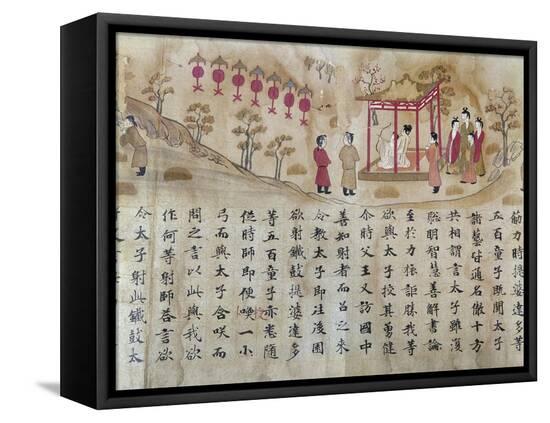 筋力時提婆達多等
五百童子既聞太子
諸藝皆通名徹十方
共相謂言太子雖復
聡明智慧善解書論
至於力筋詎勝我等
欲與太子挍其勇健
尒時父王又訪國中
善知射者而召之来
令教太子即往後園
欲射鐵鼓提婆達多
等五百童子亦悉随
従時師即便喚一小
弓而與太子含咲而
問之言以此與我欲
作何等射師荅言欲
令太子射此鐵鼓太